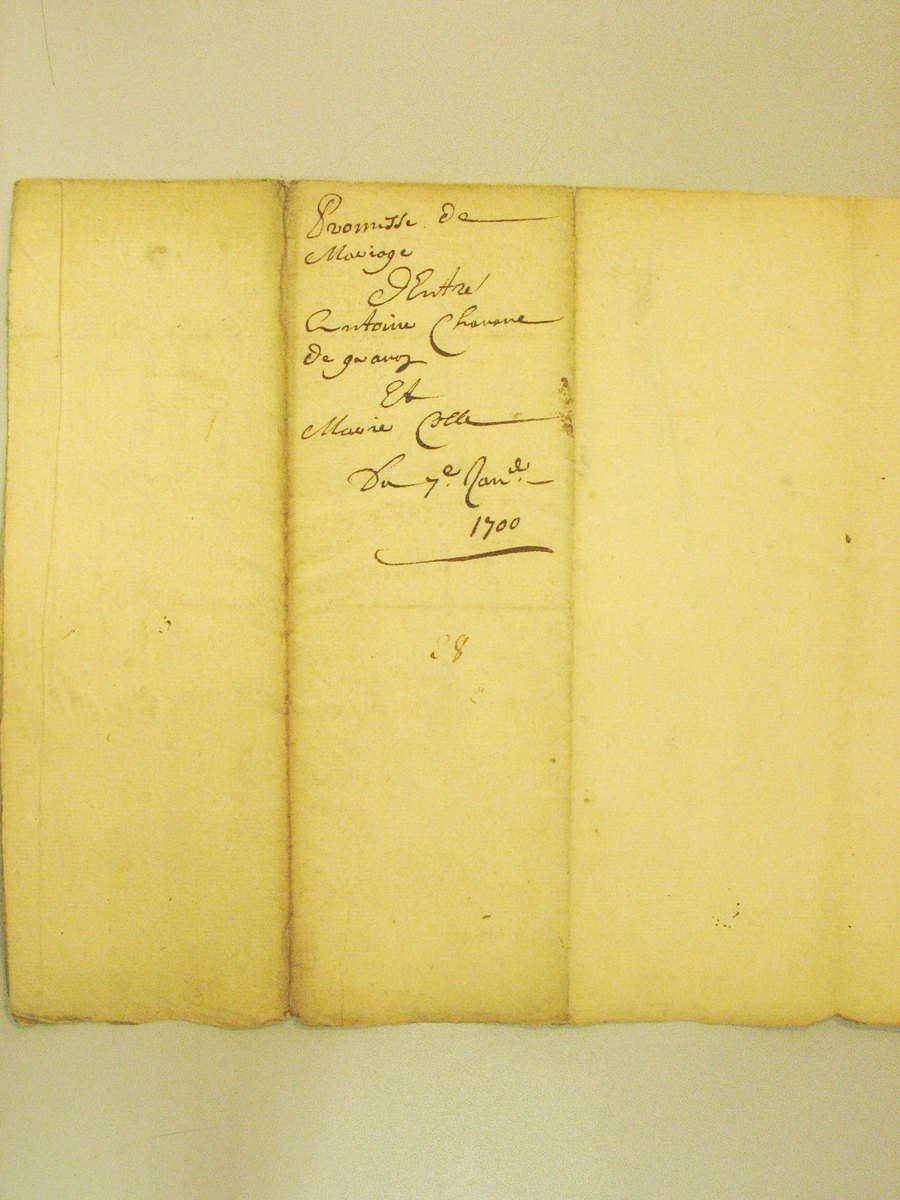 Promesse de
Mariage
D'Entre
Antoine Chavane
de
Et
Marie Colle
Du 7e. Janer.
1700
28